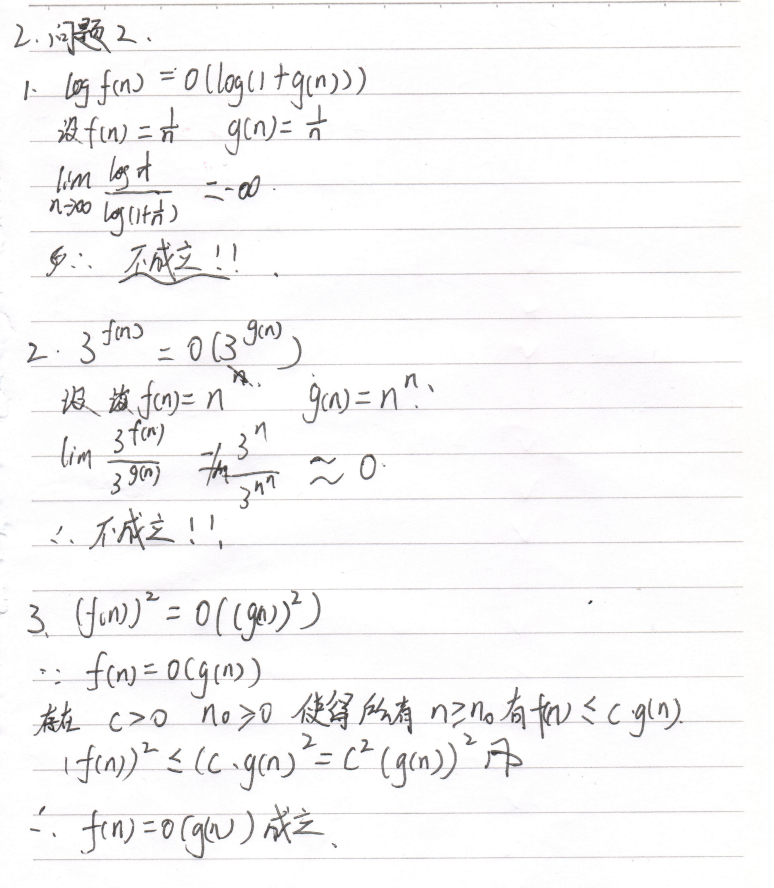 2. 问题2.
1. log f(n) = O(log(1+g(n)))
设f(n) = 1/n g(n) = 1/n
lim n→∞ log 1/n / log(1+1/n) = -∞.
∴ 不成立!!.
2. 3^f(n) = O(3^g(n))
设 f(n) = n g(n) = n^n.
lim 3^f(n) / 3^g(n) = 3^n / 3^n^n ≈ 0.
∴ 不成立!!
3. (f(n))^2 = O((g(n))^2)
∵ f(n) = O(g(n))
存在 c>0 n₀≥0 使得所有 n≥n₀ 有f(n) ≤ c·g(n).
(f(n))^2 ≤ (c·g(n)^2 = c^2 (g(n))^2
∴ f(n) = O(g(n)) 成立.